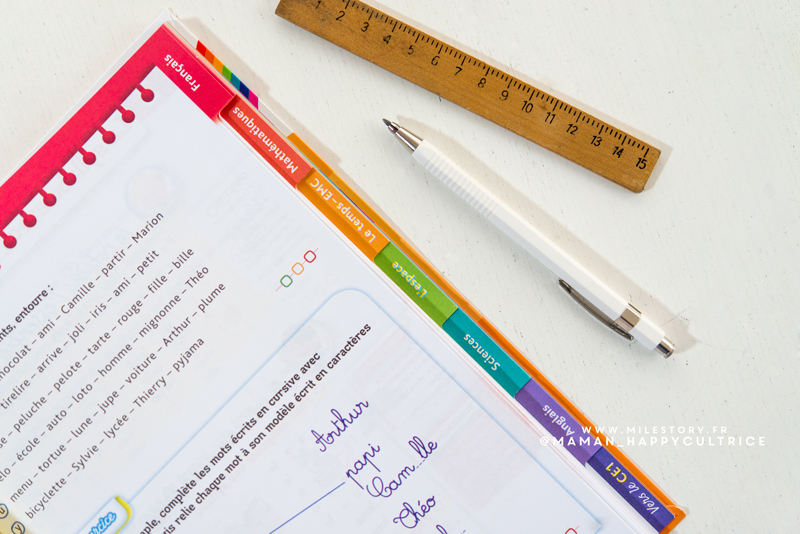 1 2 3 4 5 6 7 8 9 10 11 12 13 14 15
Français
Mathématiques
Le temps - EMC
L'espace
Sciences
Anglais
Vers le CE1
entoure :
ami – Camille – partir – Marion
tirelire – arrive – joli – iris – ami – petit
peluche – pelote – tarte – rouge – fille – bille
école – auto – loto – homme – mignonne – Théo
menu – tortue – lune – jupe – voiture – Arthur – plume
bicyclette – Sylvie – lycée – Thierry – pyjama
complète les mots écrits en cursive avec
relie chaque mot à son modèle écrit en caractères
Arthur
papi
Cam..lle
Théo
WWW.MILESTORY.FR
@MAMAN_HAPPYCULTRICE